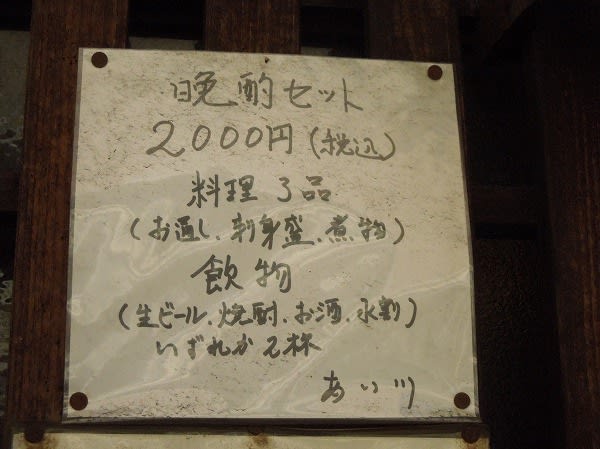 晩酌セット
2000円(税込)
料理3品
(お通し、刺身盛、煮物)
飲物
(生ビール、焼酎、お酒、水割)
いずれか2杯
あい川